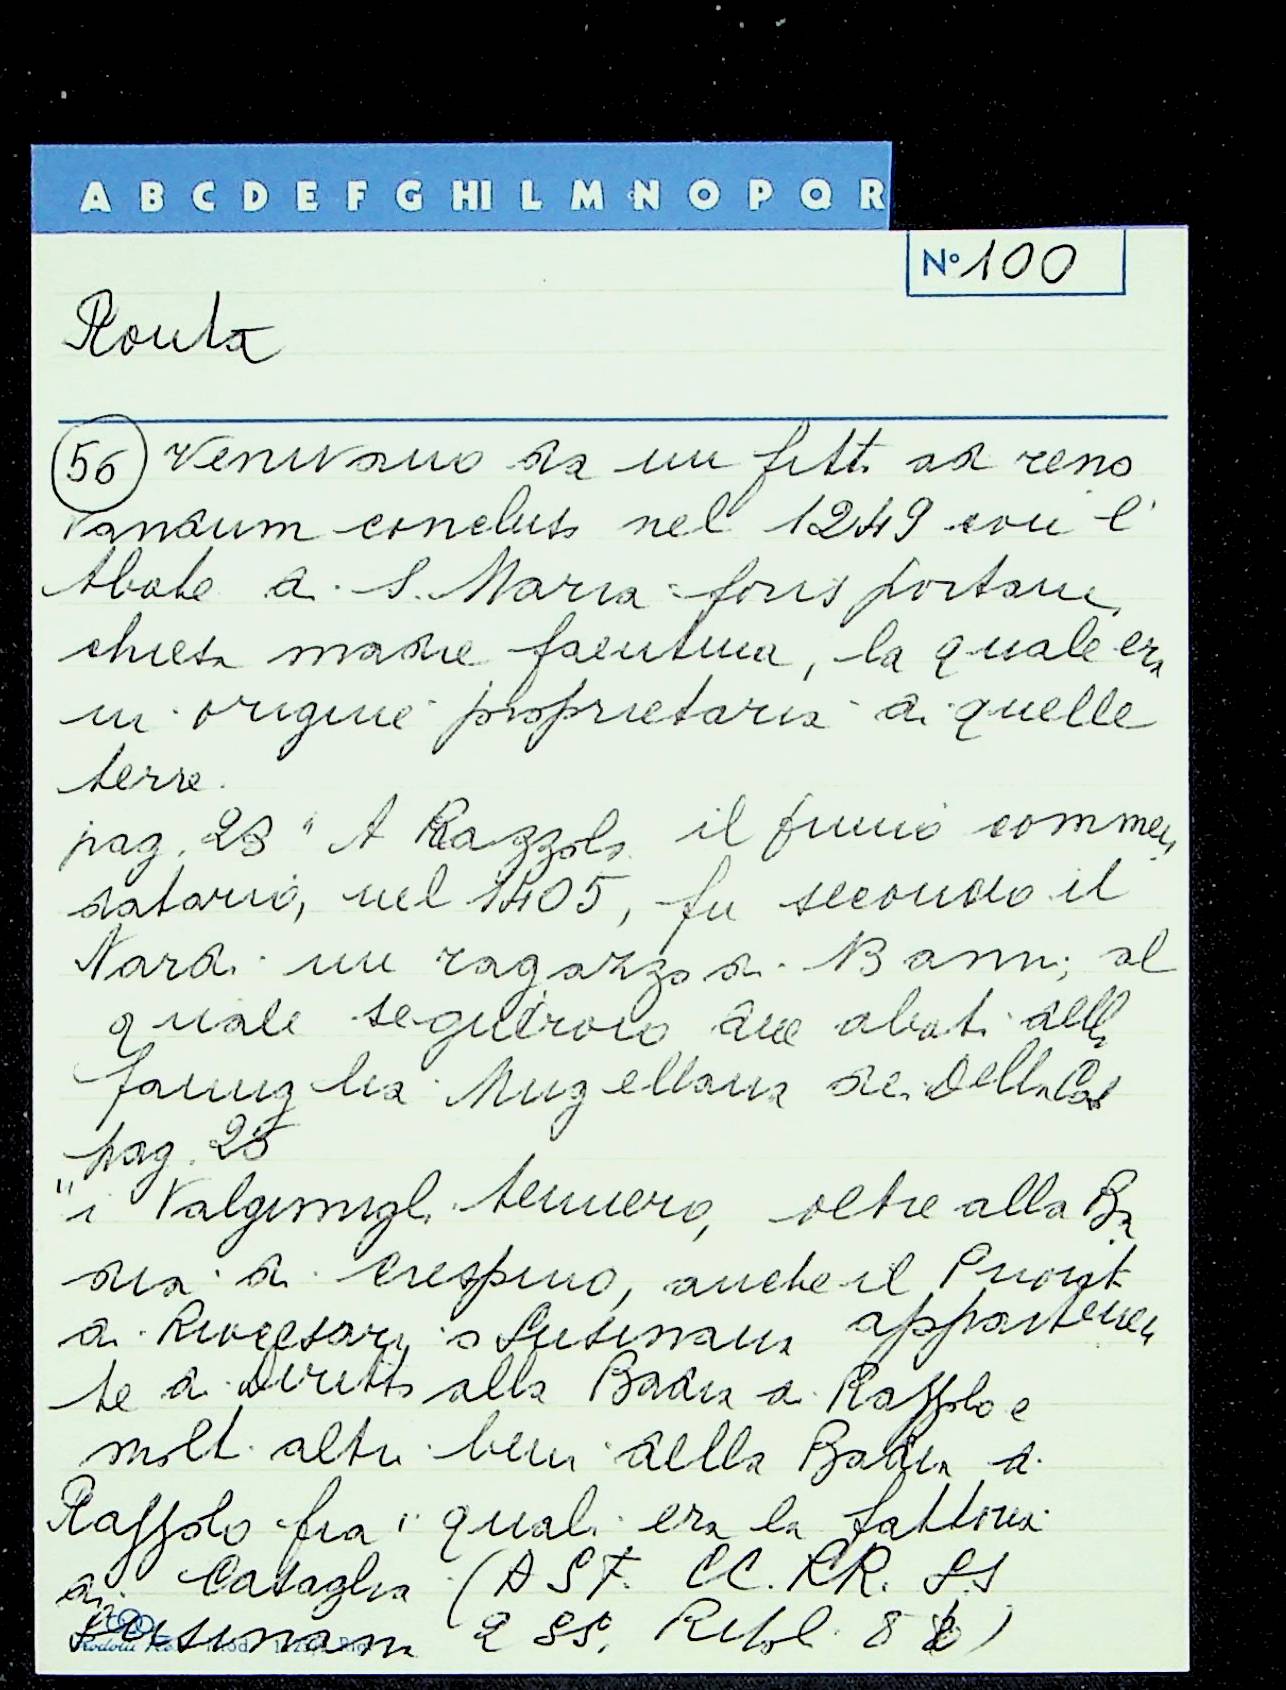 A B C D E F G HI L M N O P Q R
N° 100
Ronta
56 venivano da un fitto ad reno
vandum concluso nel 1249 con l'
Abate di S. Maria foris portam,
chiesa madre faentina, la quale era
in origine proprietaria di quelle
terre.
pag. 23 " A Razzolo il primo commen
datario, nel 1405, fu secondo il
Nardi un ragazzo di Banni, al
quale seguirono due abati della
famiglia Mugellana dei Della Casa
pag. 25
"i Valgimigli tennero, oltre alla Ba
dia di Crespino, anche il Priorato
di Rivocesare, a Susinana appartenen
te di diritto alla Badia di Razzolo e
molti altri beni della Badia di
Razzolo fra i quali era la fattoria
di Cataglia (ASF. CC.RR. SS
Susinana 2 SS. Ripol. 8